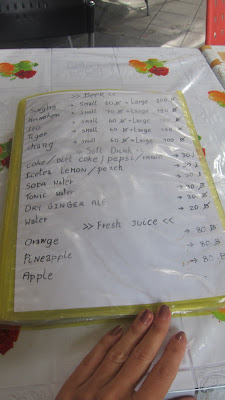 >> Beer <<
Singha → Small 60 ฿ → Large 100 ฿
→ Small 70 ฿ → Large
Leo → Small 60 ฿ → Large
Tiger → Small 60 ฿ → Large
chang → Small 60 ฿ → Large
>> Soft Drink <<
Coke / Diet coke / pepsi /
Icetea LEMON / peach
SODA Water
TONIC Water → 30 ฿
DRY GINGER ALE → 30 ฿
Water → 20 ฿
>> Fresh Juice <<
Orange → 80 ฿
Pineapple → 80 ฿
Apple → 80 ฿